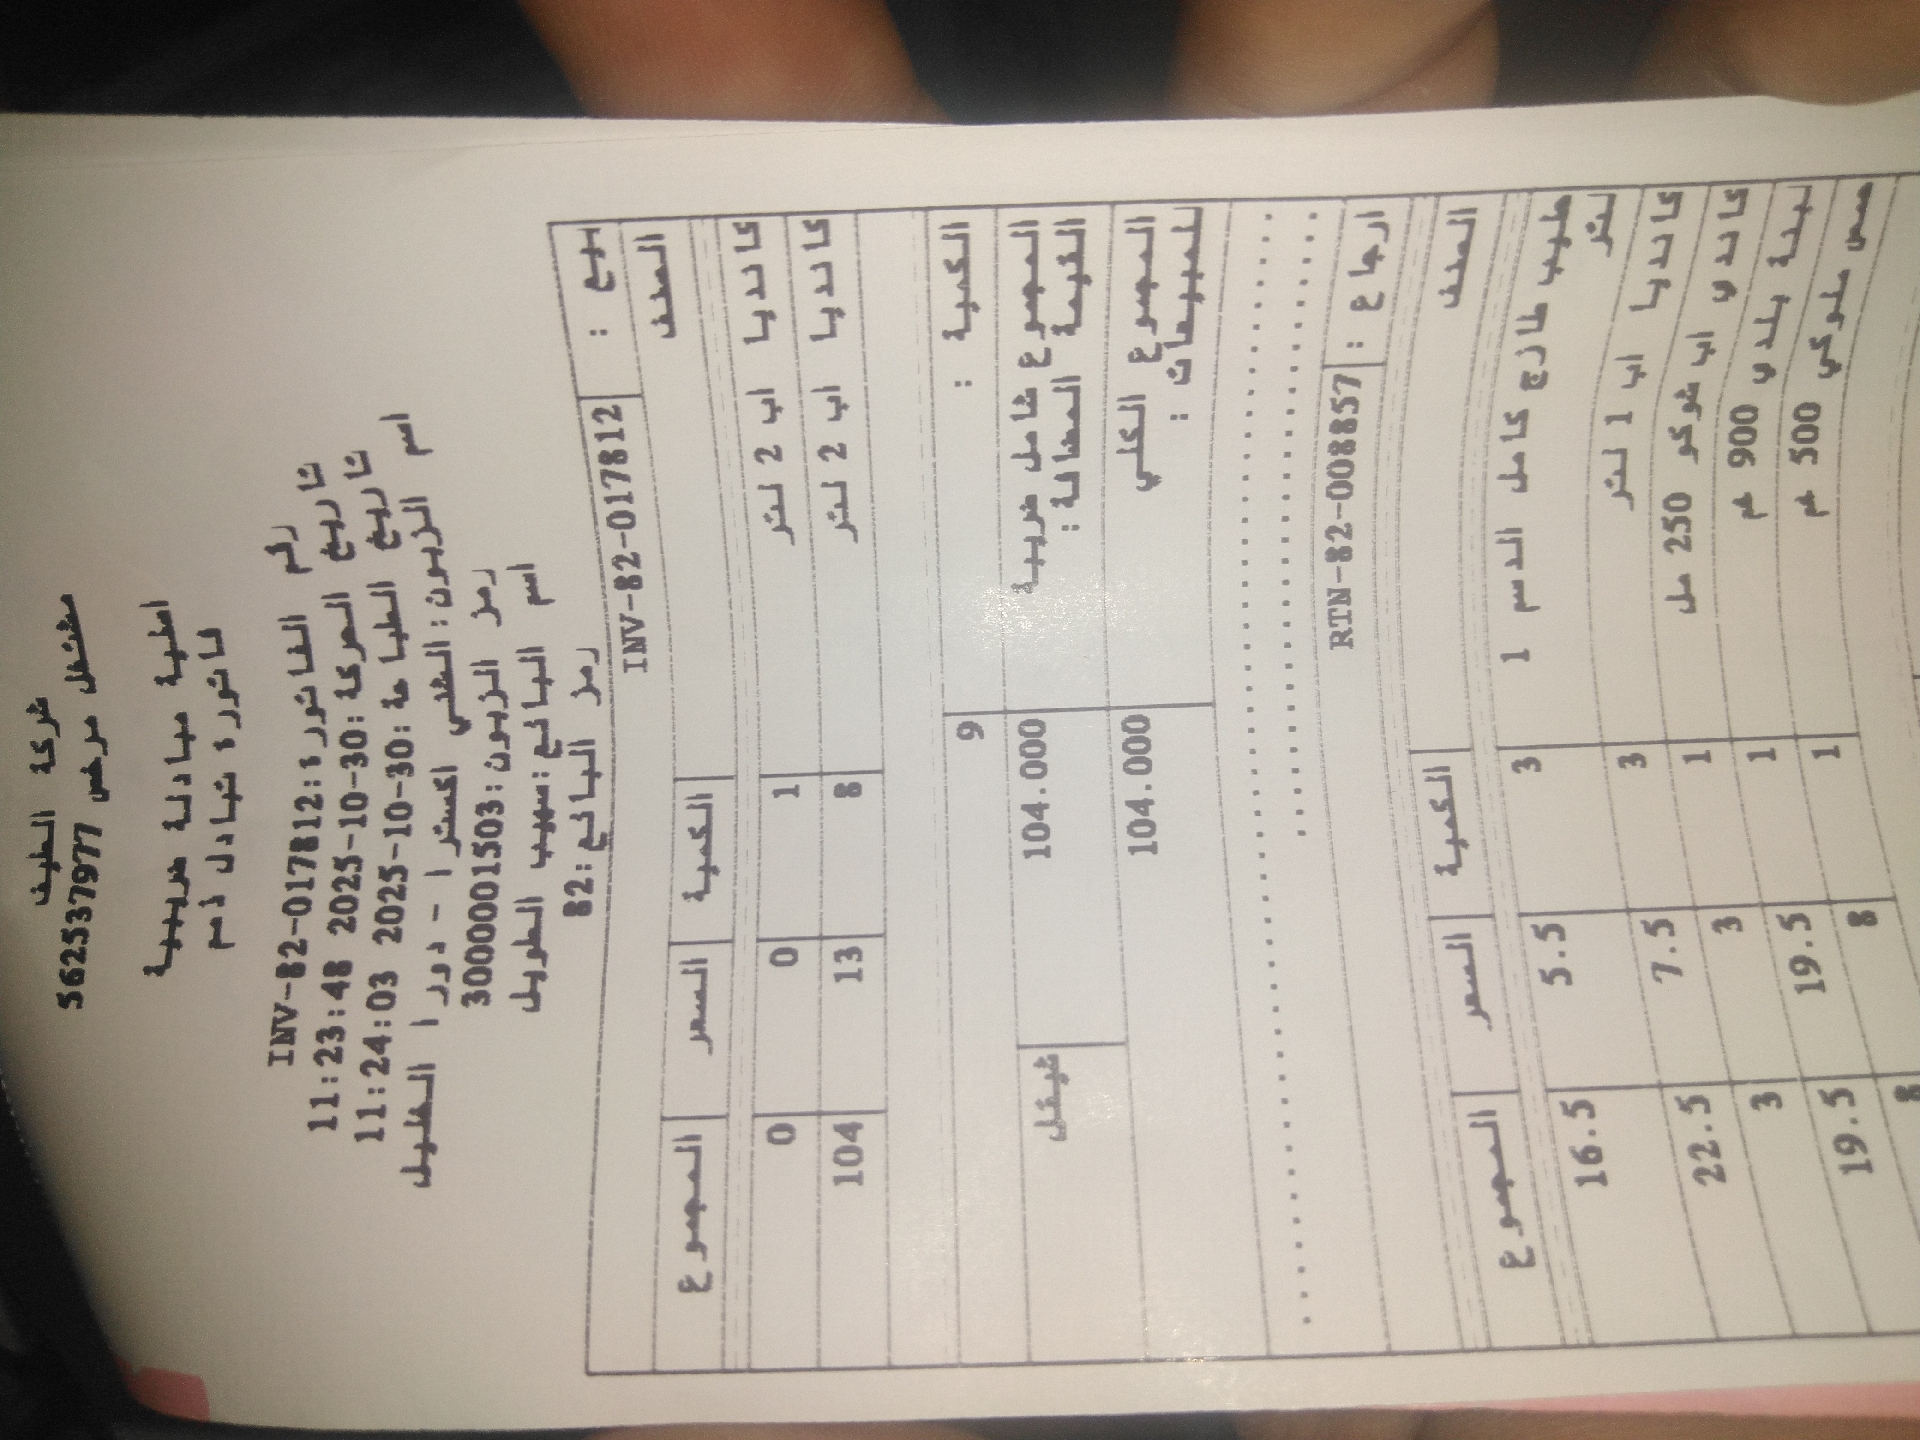 شركة الطيف
مشتغل مرخص 562537977
اصلية مبادلة ضريبية
فاتورة تبادل ذمم
رقم الفاتورة: INV-82-017812
تاريخ الحركة: 2025-10-30 11:23:48
تاريخ الطباعة: 2025-10-30 11:24:03
اسم الزبون: الشني اكسترا - دورا الخليل
رمز الزبون: 3000001503
اسم البائع: صهيب الطويل
رمز البائع: 82
بيع : INV-82-017812
الصنف الكمية السعر المجموع
كانديا اب 2 لتر 1 0 0
كانديا اب 2 لتر 8 13 104
الكمية : 9
المجموع شامل ضريبة القيمة المضافة : 104.000 شيقل
المجموع الكلي للمبيعات : 104.000
ارجاع : RTN-82-008857
الصنف الكمية السعر المجموع
حليب طازج كامل الدسم 1 لتر 3 5.5 16.5
كانديا اب 1 لتر 3 7.5 22.5
كاندي اب شوكو 250 مل 1 3 3
لبنة بلدي 900 غم 1 19.5 19.5
ملوكي 500 غم 1 8 8